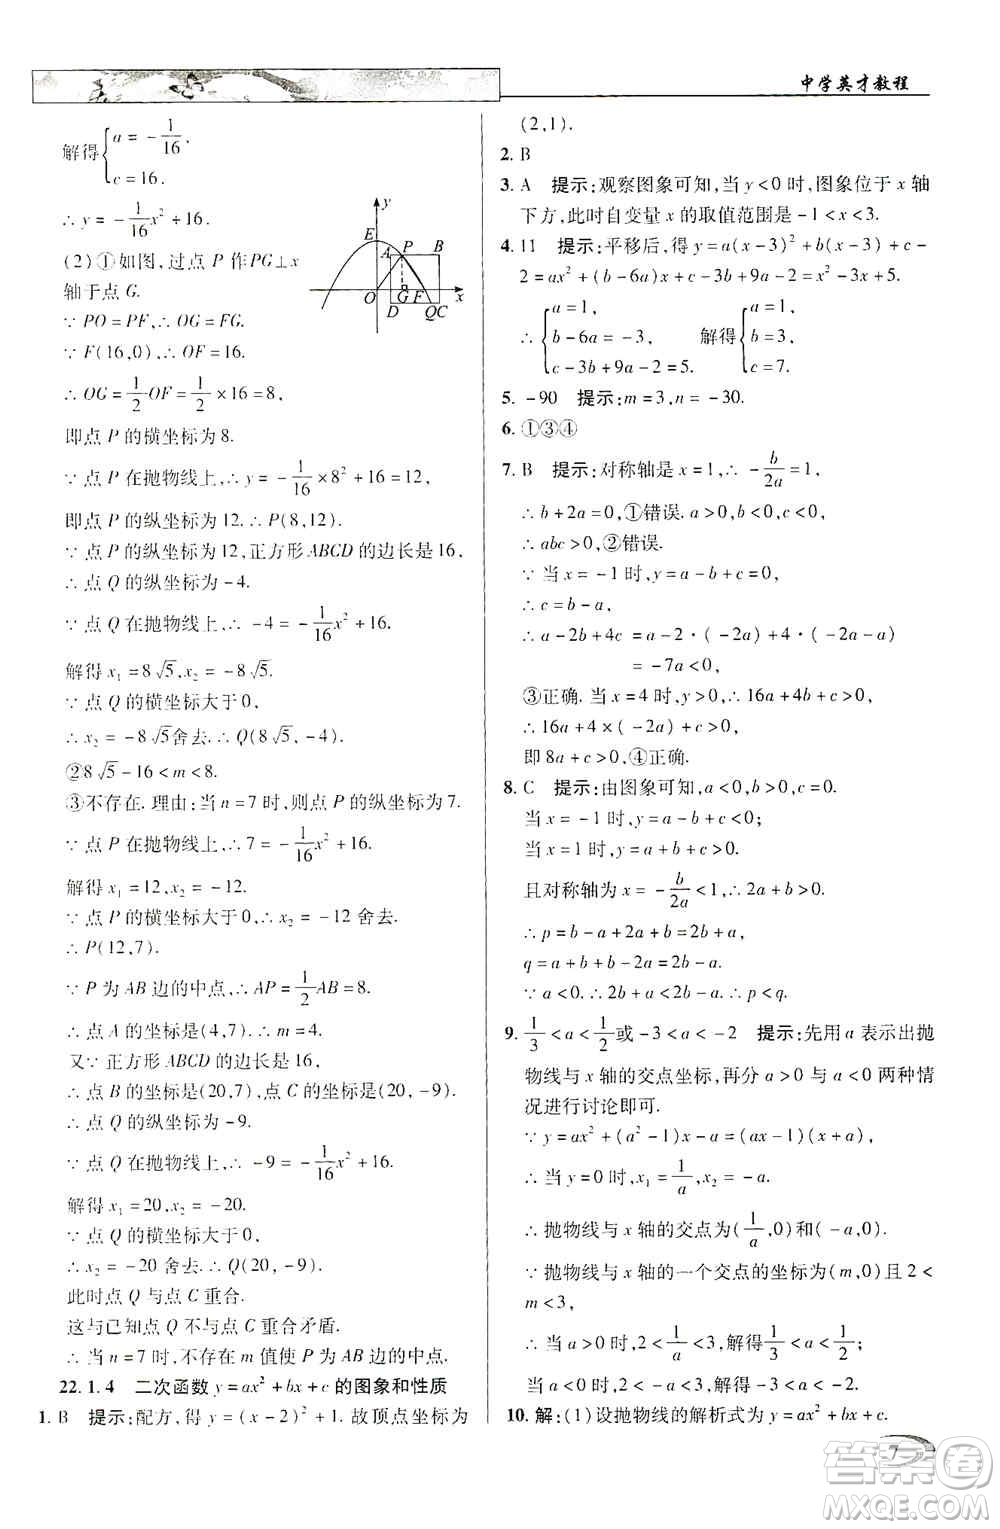 中学英才教程
解得{a=-1/16.
c=16.
∴ y=-1/16x²+16.
(2)①如图,过点 P 作PG⊥x
轴于点 G.
∵ PO=PF,∴ OG=FG.
∵ F(16,0),∴ OF=16.
∴ OG=1/2·OF=1/2×16=8,
即点 P 的横坐标为 8.
∵ 点 P 在抛物线上,∴ y=-1/16×8²+16=12,
即点 P 的纵坐标为 12.∴ P(8,12).
∵ 点 P 的纵坐标为 12,正方形 ABCD 的边长是 16,
∴ 点 Q 的纵坐标为 -4.
∵ 点 Q 在抛物线上,∴ -4=-1/16x²+16.
解得 x₁=8√5,x₂=-8√5.
∵ 点 Q 的横坐标大于 0,
∴ x₂=-8√5舍去.∴ Q(8√5,-4).
②8√5-16<m<8.
③不存在.理由:当 n=7 时,则点 P 的纵坐标为 7.
∵ 点 P 在抛物线上,∴ 7=-1/16x²+16.
解得 x₁=12,x₂=-12.
∵ 点 P 的横坐标大于 0,∴ x₂=-12 舍去.
∴ P(12,7).
∵ P 为 AB 边的中点,∴ AP=1/2AB=8.
∴ 点 A 的坐标是(4,7).∴ m=4.
又∵ 正方形 ABCD 的边长是 16,
∴ 点 B 的坐标是(20,7),点 C 的坐标是(20,-9).
∴ 点 Q 的纵坐标为 -9.
∵ 点 Q 在抛物线上,∴ -9=-1/16x²+16.
解得 x₁=20,x₂=-20.
∵ 点 Q 的横坐标大于 0,
∴ x₂=-20 舍去.∴ Q(20,-9).
此时点 Q 与点 C 重合.
这与已知点 Q 不与点 C 重合矛盾.
∴ 当 n=7 时,不存在 m 值使 P 为 AB 的中点.
22.1.4 二次函数 y=ax²+bx+c 的图象和性质
1. B 提示:配方,得 y=(x-2)²+1.故顶点坐标为
y
E
A
P
B
O
G
F
x
D
QC
(2,1).
2. B
3. A 提示:观察图象可知,当 y<0 时,图象位于 x 轴
下方,此时自变量 x 的取值范围是 -1<x<3.
4. 11 提示:平移后,得 y=a(x-3)²+b(x-3)+c-
2=ax²+(b-6a)x-3b+9a+c-2=x²-3x+5.
∴ {a=1,
b-6a=-3,
c-3b+9a-2=5.
解得{a=1,
b=3,
c=7.
5. -90 提示:m=3,n=-30.
6. ①③④
7. B 提示:对称轴是 x=1,∴ -b/2a=1,
∴ b+2a=0,①错误.a>0,b<0,c<0,
∴ abc>0,②错误.
∵ 当 x=-1 时,y=a-b+c=0,
∴ c=b-a,
∴ a-2b+4c=a-2·(-2a)+4(-2a-a)
=-7a<0,
③正确.当 x=4 时,y>0,∴ 16a+4b+c>0,
∴ 16a+4×(-2a)-2a-a>0.
即 8a+c>0,④正确.
8. C 提示:由图象可知,a<0,c=0.
当 x=-1 时,y=a-b+c<0;
当 x=1 时,y=a+b+c>0.
且对称轴为 x=-b/2a<1,∴ 2a+b<0.
∴ p=b-a+2a+b=a+2b,
q=a+b-2a-b=-a=a-2a.
∵ a<0.∴ a+2b<a-2a.∴ p<q.
9. 1/3<a<1/2或 -3<a<-2 提示:先用 a 表示出抛
物线与 x 轴的交点坐标,再分 a>0 与 a<0 两种情
况进行讨论即可.
∵ y=ax²+(a²-1)x-a=(ax-1)(x+a),
∴ 当 y=0 时,x₁=1/a,x₂=-a,
∴ 抛物线与 x 轴的交点为(1/a,0)和(-a,0).
∵ 抛物线与 x 轴的一个交点的坐标为(m,0)且 2<
m<3,
∴ 当 a>0 时,2<1/a<3,解得1/3<a<1/2;
当 a<0 时,2<-a<3,解得 -3<a<-2.
10. 解:(1)设抛物线的解析式为 y=ax²+bx+c.
7
答案圈
MXQE.COM